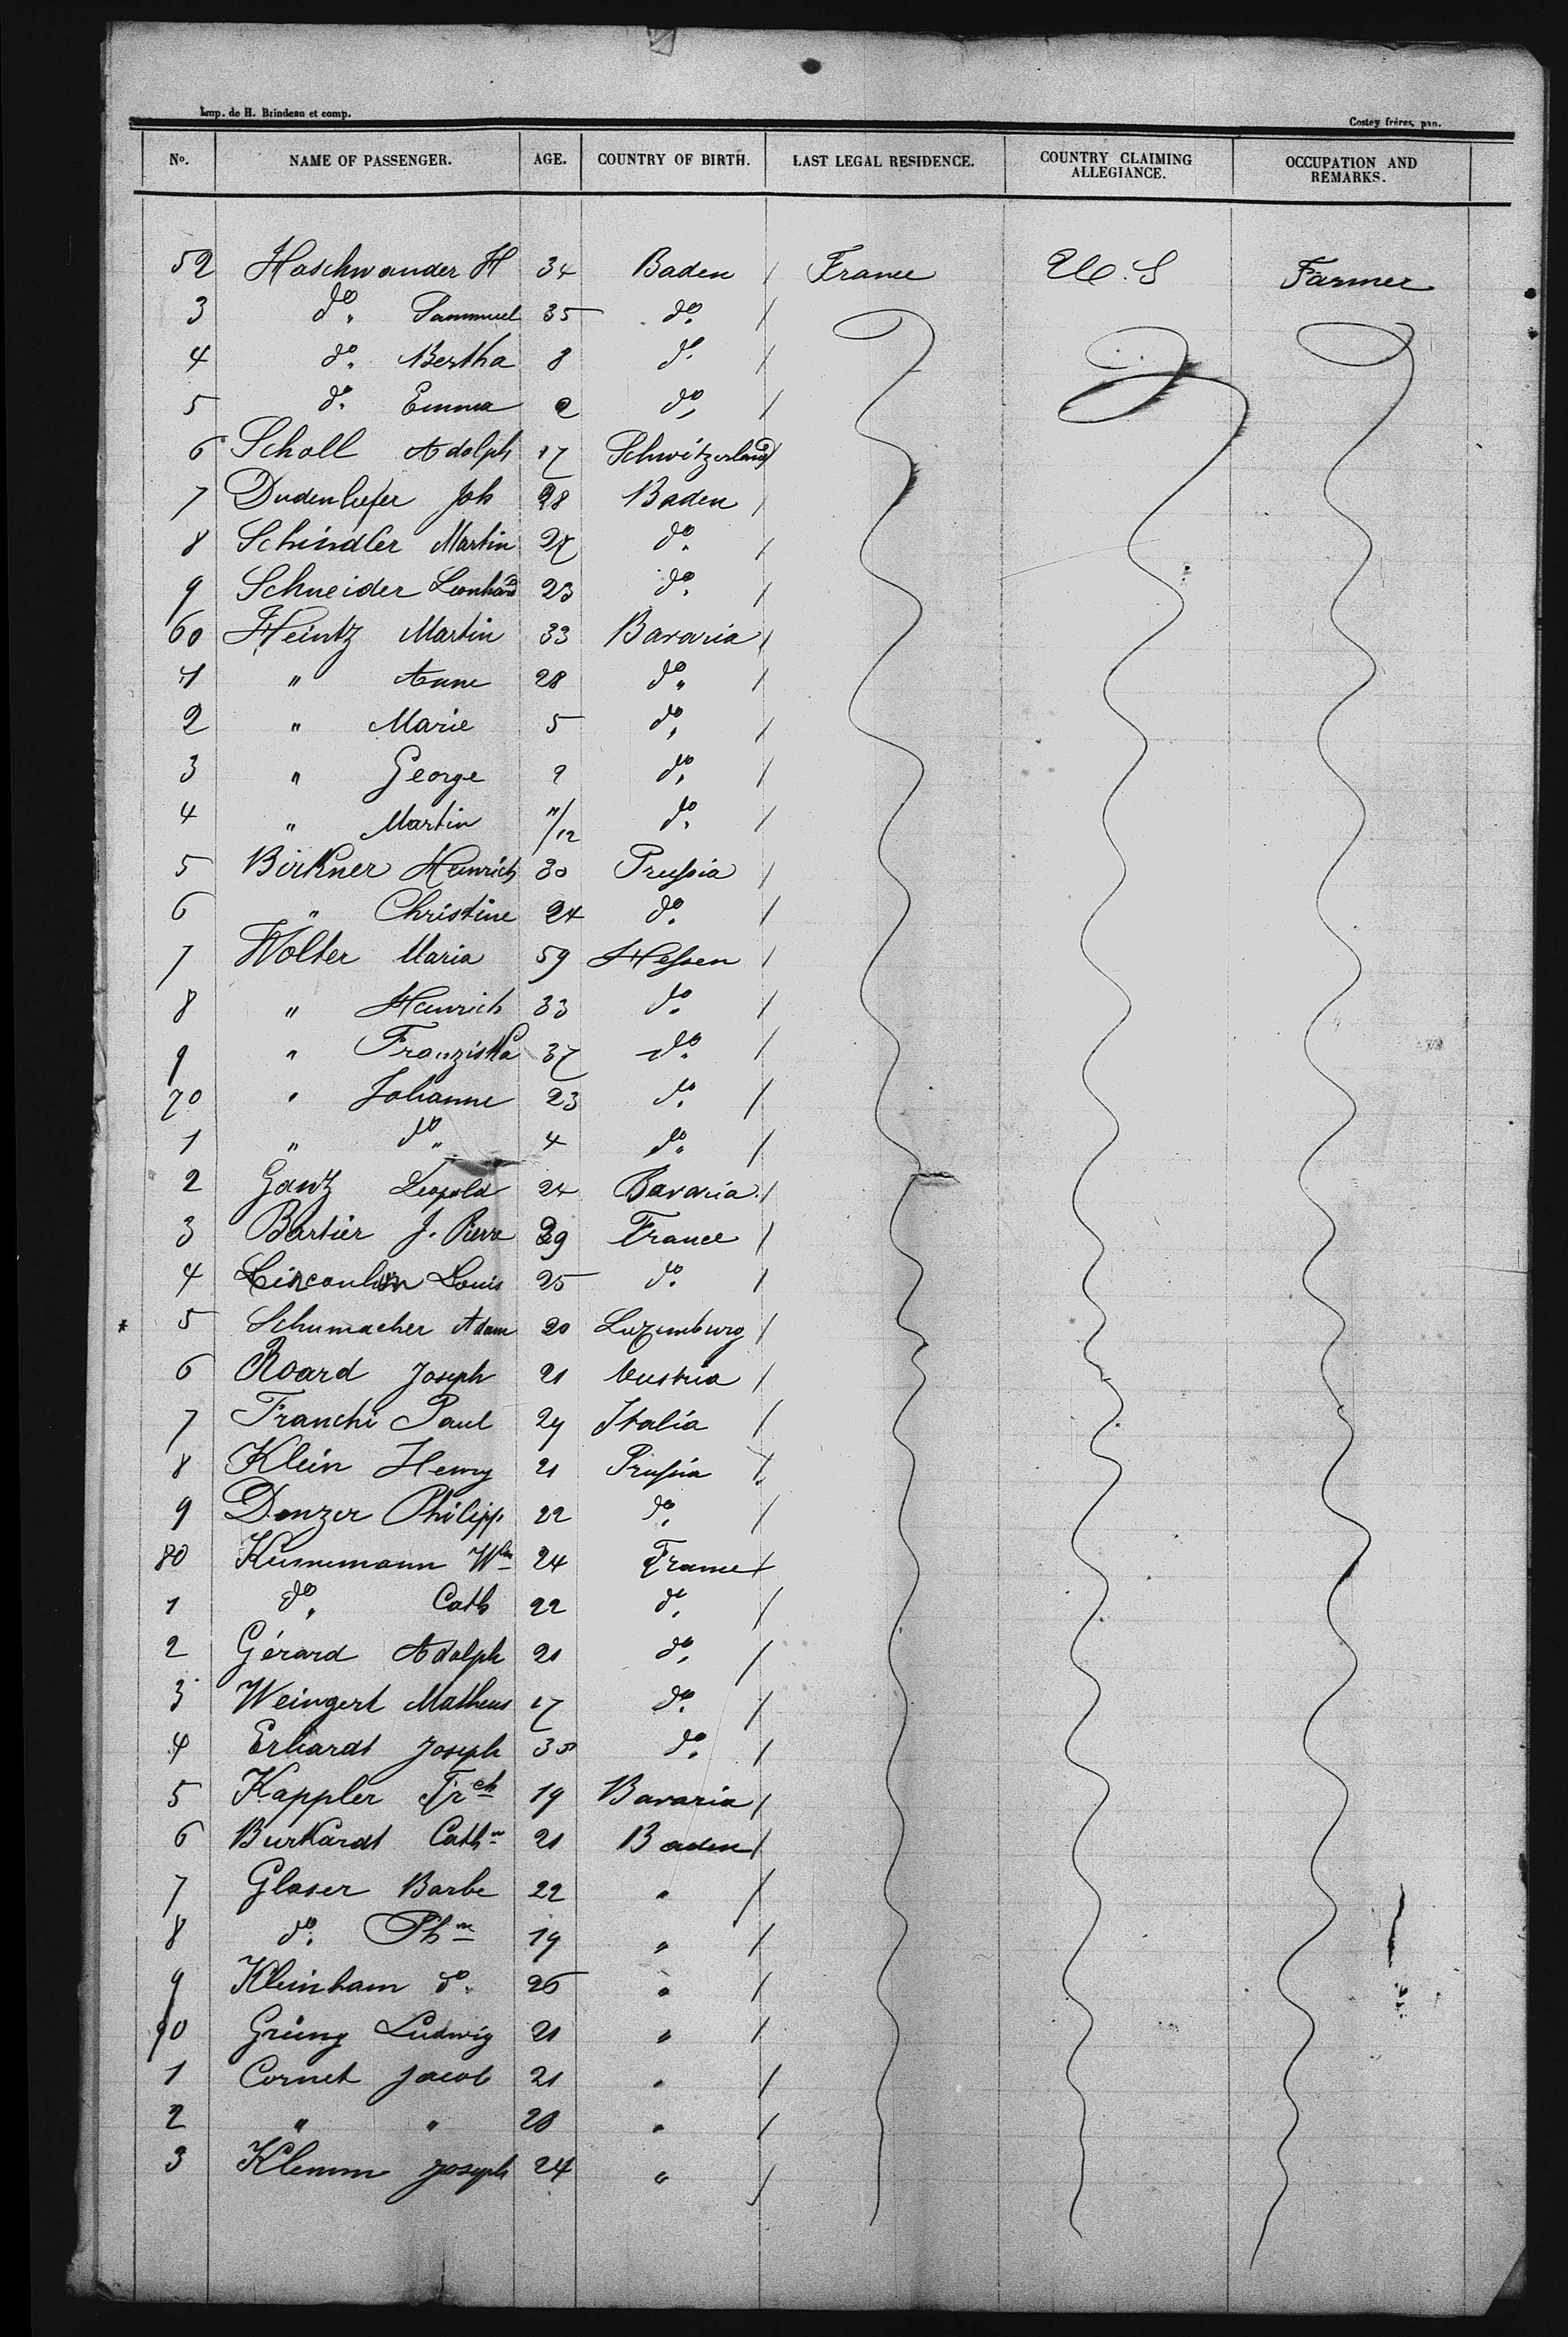 Imp. de H. Brindeau et comp.
Costey frères, pap.
No. NAME OF PASSENGER. AGE. COUNTRY OF BIRTH. LAST LEGAL RESIDENCE. COUNTRY CLAIMING ALLEGIANCE. OCCUPATION AND REMARKS.
52 Haschwander H 34 Baden / France U.S Farmer
3 do. Sammuel 35 do. /
4 do. Bertha 8 do. /
5 do. Emma 2 do. /
6 Scholl Adolph 17 Schwitzerland /
7 Dudenhefer Joh 28 Baden /
8 Schindler Martin 27 do. /
9 Schneider Leonhard 23 do. /
60 Heintz Martin 33 Bavaria /
1 " Anne 28 do. /
2 " Marie 5 do. /
3 " George 2 do. /
4 " Martin 11/12 do. /
5 Birkner Heinrich 30 Prussia /
6 " Christine 24 do. /
7 Wolter Maria 59 Hessen /
8 " Heinrich 33 do. /
9 " Franziska 37 do. /
70 " Johanne 23 do. /
1 " do. 4 do. /
2 Gantz Leopold 24 Bavaria /
3 Bartier J. Pierre 29 France /
4 Louis 25 do. /
* 5 Schumacher Adam 20 Luxemburg /
6 Roard Joseph 21 Austria /
7 Franchi Paul 29 Italia /
8 Klein Henry 21 Prussia /
9 Denzer Philipp 22 do. /
80 Kunnemann Wm 24 France /
1 do. Cath 22 do. /
2 Gérard Adolph 21 do. /
3 Weingert Matheus 17 do. /
4 Erhardt Joseph 30 do. /
5 Kappler Frch 19 Bavaria /
6 Burkardt Cathn 21 Baden /
7 Glaser Barbe 22 " /
8 do. Phm 19 " /
9 Kleinham do. 26 " /
90 Grüny Ludwig 21 " /
1 Cornet Jacob 21 " /
2 " " 20 " /
3 Klemm Joseph 24 " /